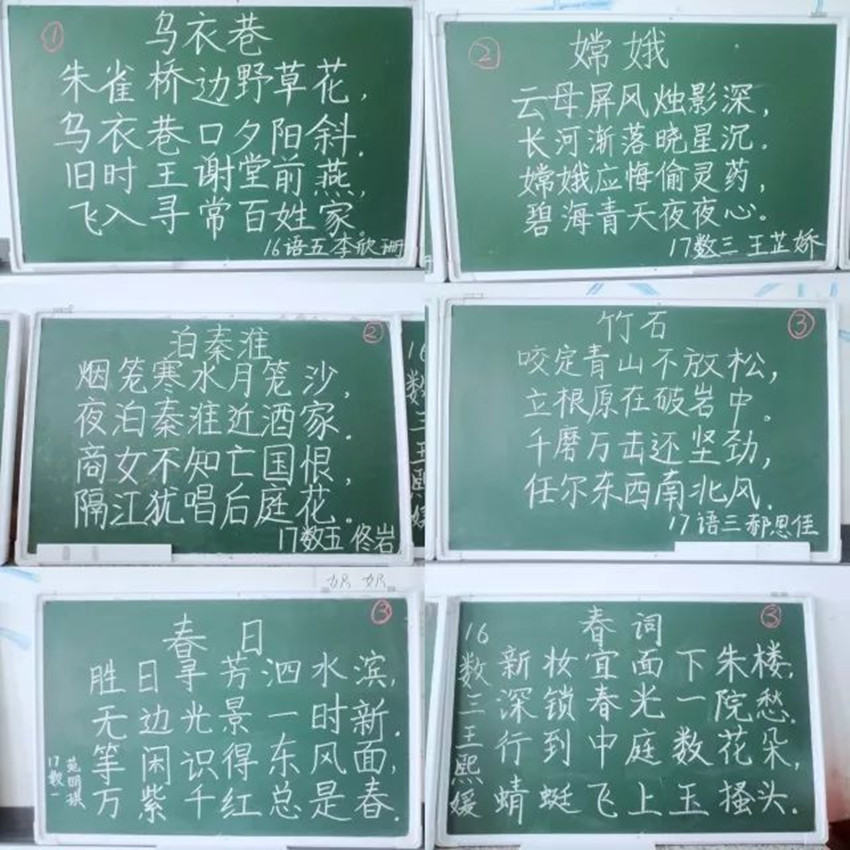 ①
乌衣巷
朱雀桥边野草花,
乌衣巷口夕阳斜.
旧时王谢堂前燕,
飞入寻常百姓家.
16语五李欣珊
②
嫦娥
云母屏风烛影深,
长河渐落晓星沉.
嫦娥应悔偷灵药,
碧海青天夜夜心。
17数三 王芷娇
②
泊秦淮
烟笼寒水月笼沙,
夜泊秦淮近酒家.
商女不知亡国恨,
隔江犹唱后庭花。
17数五 佟岩
16数三王熙媛
③
竹石
咬定青山不放松,
立根原在破岩中。
千磨万击还坚劲,
任尔东西南北风.
17语三郝思佳
③
春日
胜日寻芳泗水滨,
无边光景一时新.
等闲识得东风面,
万紫千红总是春.
17数一
范明琪
③
春词
新妆宜面下朱楼,
深锁春光一院愁.
行到中庭数花朵,
蜻蜓飞上玉搔头.
16数三王熙媛